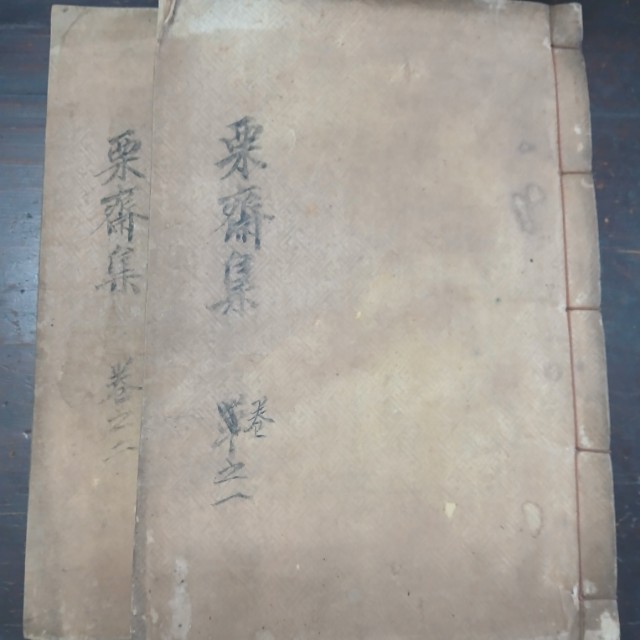 栗齋集 卷之一
栗齋集 卷之二